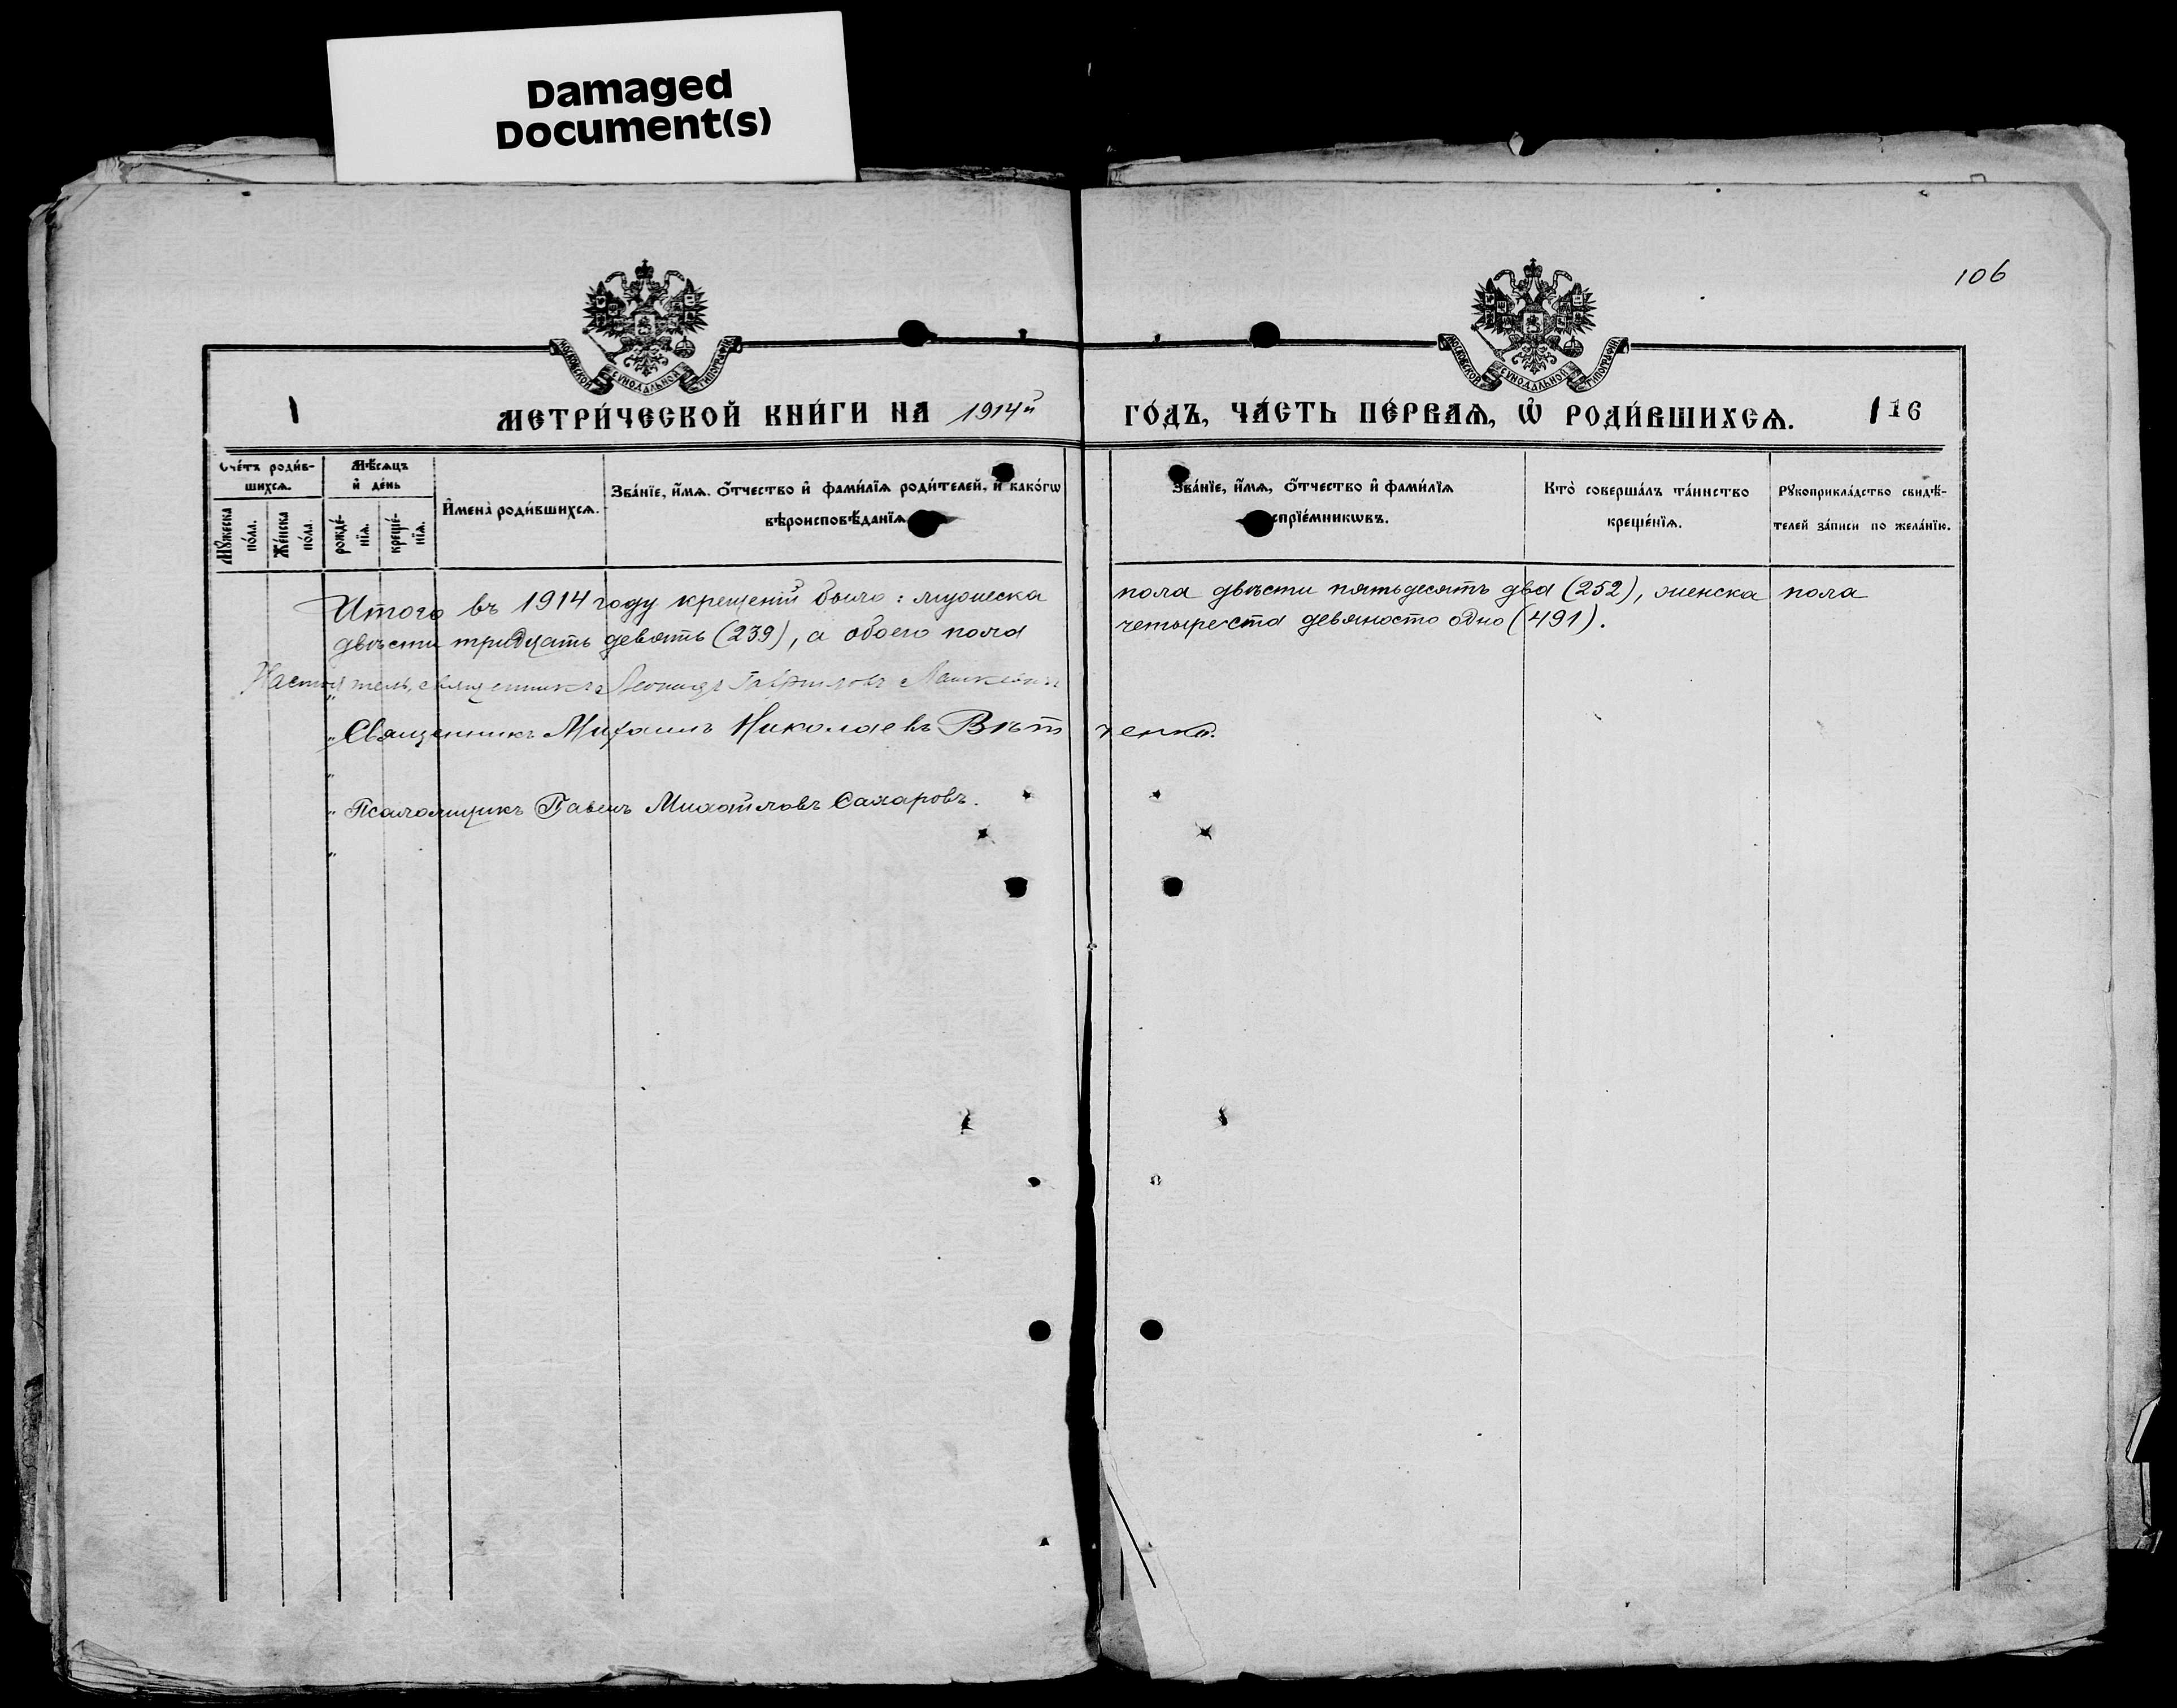 Damaged
Document(s)
106
МОСКОВСКОЙ СУНОДАЛЬНОЙ ТИПОГРАФІИ
МОСКОВСКОЙ СУНОДАЛЬНОЙ ТИПОГРАФІИ
МЕТРИ́ЧЕСКОЙ КНИ́ГИ НА 1914й ГО́ДЪ, ЧА́СТЬ ПЕ́РВАѦ, Ѡ҆ РОДИ́ВШИХСѦ. 116
Сче́тъ роди́в-
шихсѧ.
Мꙋ́жеска по́ла.
Же́нска по́ла.
Мѣ́сѧцъ
и҆ де́нь
рожде́-
нїѧ.
креще́-
нїѧ.
И҆мена̀ роди́вшихсѧ.
Зва́нїе, и҆́мѧ, ѻ҆́тчество и҆ фами́лїѧ роди́телей, и҆ како́гѡ
вѣроисповѣ́данїѧ
Зва́нїе, и҆́мѧ, ѻ҆́тчество и҆ фами́лїѧ
спрїе́мникѡвъ.
Кто̀ соверша́лъ та́инство
креще́нїѧ.
Рꙋкоприкла́дство свидѣ́-
телей за́писи по жела́нїю.
Итого въ 1914 году крещеній было: мужеска пола двѣсти пятьдесятъ два (252), женска пола
двѣсти тридцать девять (239), а обоего пола четыреста девяносто одно (491).
Настоятель, священникъ Леонидъ Гавриловъ
Священникъ Михаилъ Николаевъ Вѣтченко.
Псаломщикъ Павелъ Михайловъ Сахаровъ.